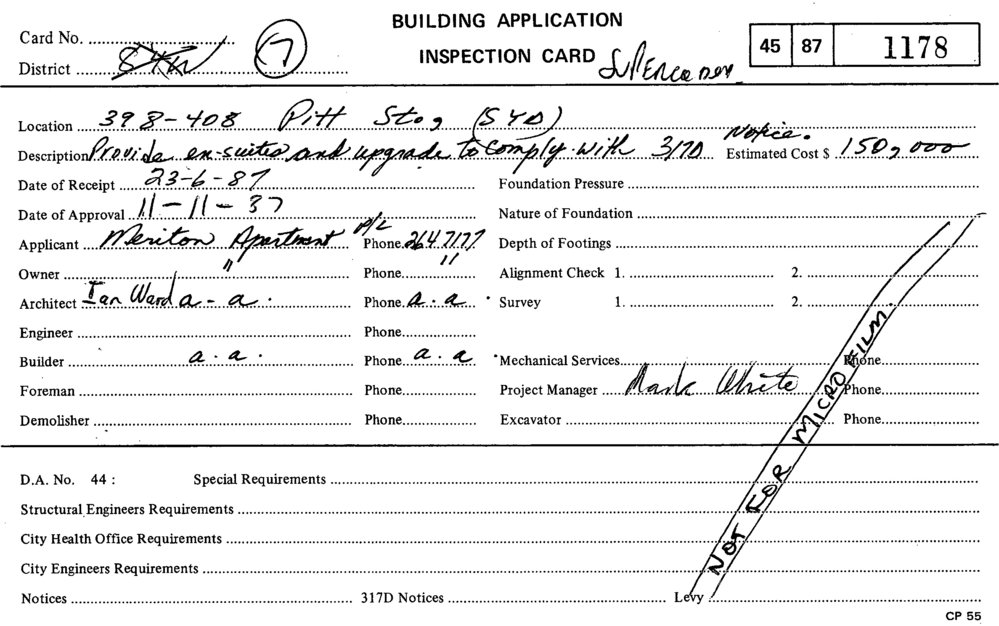 BUILDING APPLICATION
INSPECTION CARD
45 87 1178
Card No.
7
District
Location 398-408 Pitt St., (SYD)
Description Provide en-suites and upgrade to comply with 317D Notice. Estimated Cost $ 150,000
Date of Receipt 23-6-87
Foundation Pressure
Date of Approval 11-11-87
Nature of Foundation
Applicant Meriton Apartment P/L Phone 264 7177
Depth of Footings
Owner " Phone "
Alignment Check 1. 2.
Architect Ian Ward a-a. Phone a.a
Survey 1. 2.
Engineer Phone
Builder a.a. Phone a.a
Mechanical Services Phone
Foreman Phone
Project Manager Mark White Phone
Demolisher Phone
Excavator Phone
NOT FOR MICRO FILM.
D.A. No. 44 : Special Requirements
Structural Engineers Requirements
City Health Office Requirements
City Engineers Requirements
Notices 317D Notices Levy
CP 55